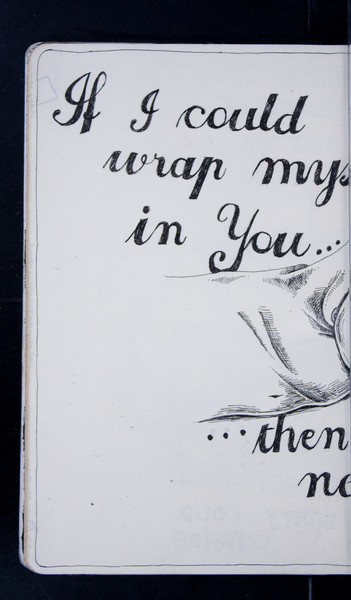 If I could
wrap mys
in You...
...then
ne